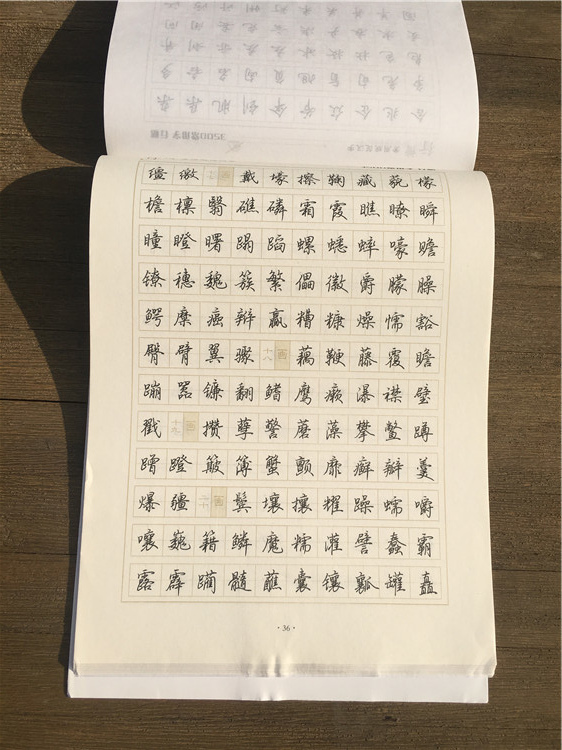 缰缴十七画戴壕擦鞠藏藐檬
檐檩翳礁磷霜霞瞧瞭瞬
瞳瞪曙蹋蹈螺蟋蟀嚎赡
镣穗魏簇繁儡徽爵朦臊
鳄糜癌辫赢糟糠燥懦豁
臀臂翼骤十八画藕鞭藤覆瞻
蹦嚣镰翻鳍鹰癞瀑襟璧
戳十九画攒孽警蘑藻攀鳖蹲
蹭蹬簸簿蟹颤靡癣瓣羹
爆疆二十画鬓壤攘耀躁蠕嚼
嚷巍籍鳞魔糯灌譬蠢霸
露霹躏髓蘸囊镶瓤罐矗
·36·